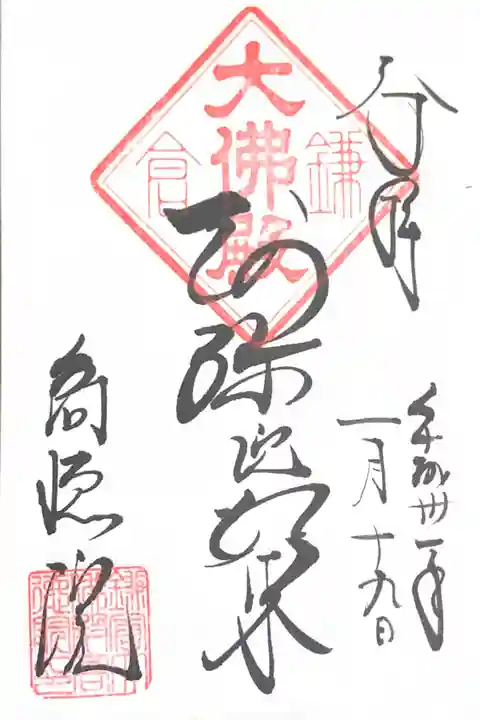 奉拝
平成卅一年
一月十九日
鎌倉
大佛殿
阿弥陀如来
高徳院